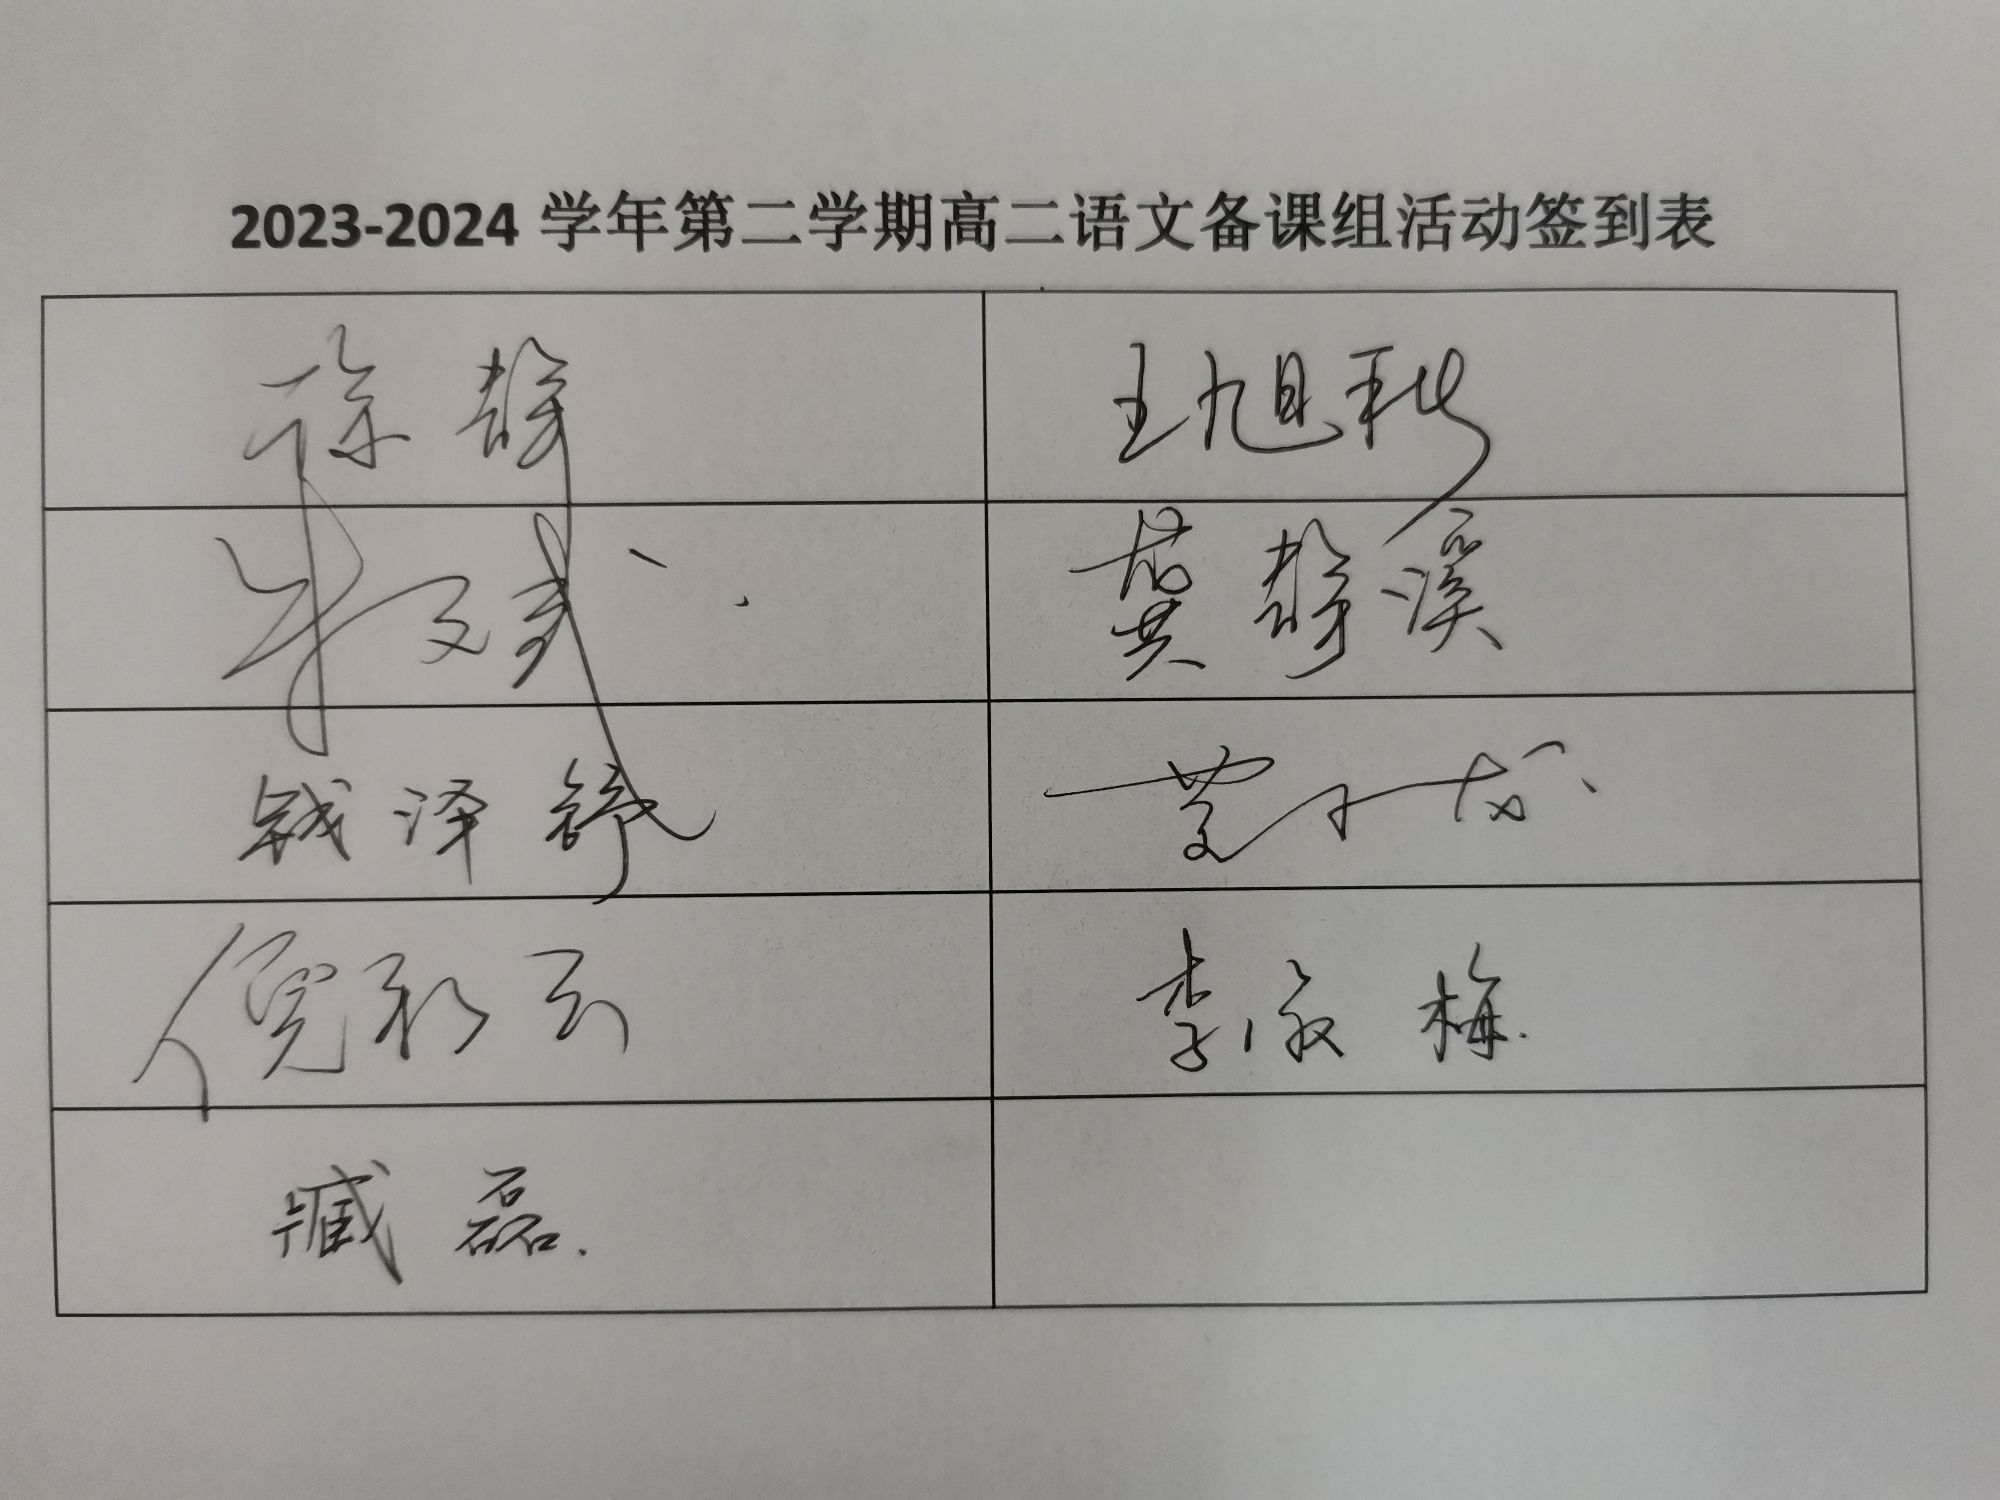 2023-2024 学年第二学期高二语文备课组活动签到表
徐静 王旭秋
龚静溪
钱泽舒
倪和云 李淑梅
臧磊.